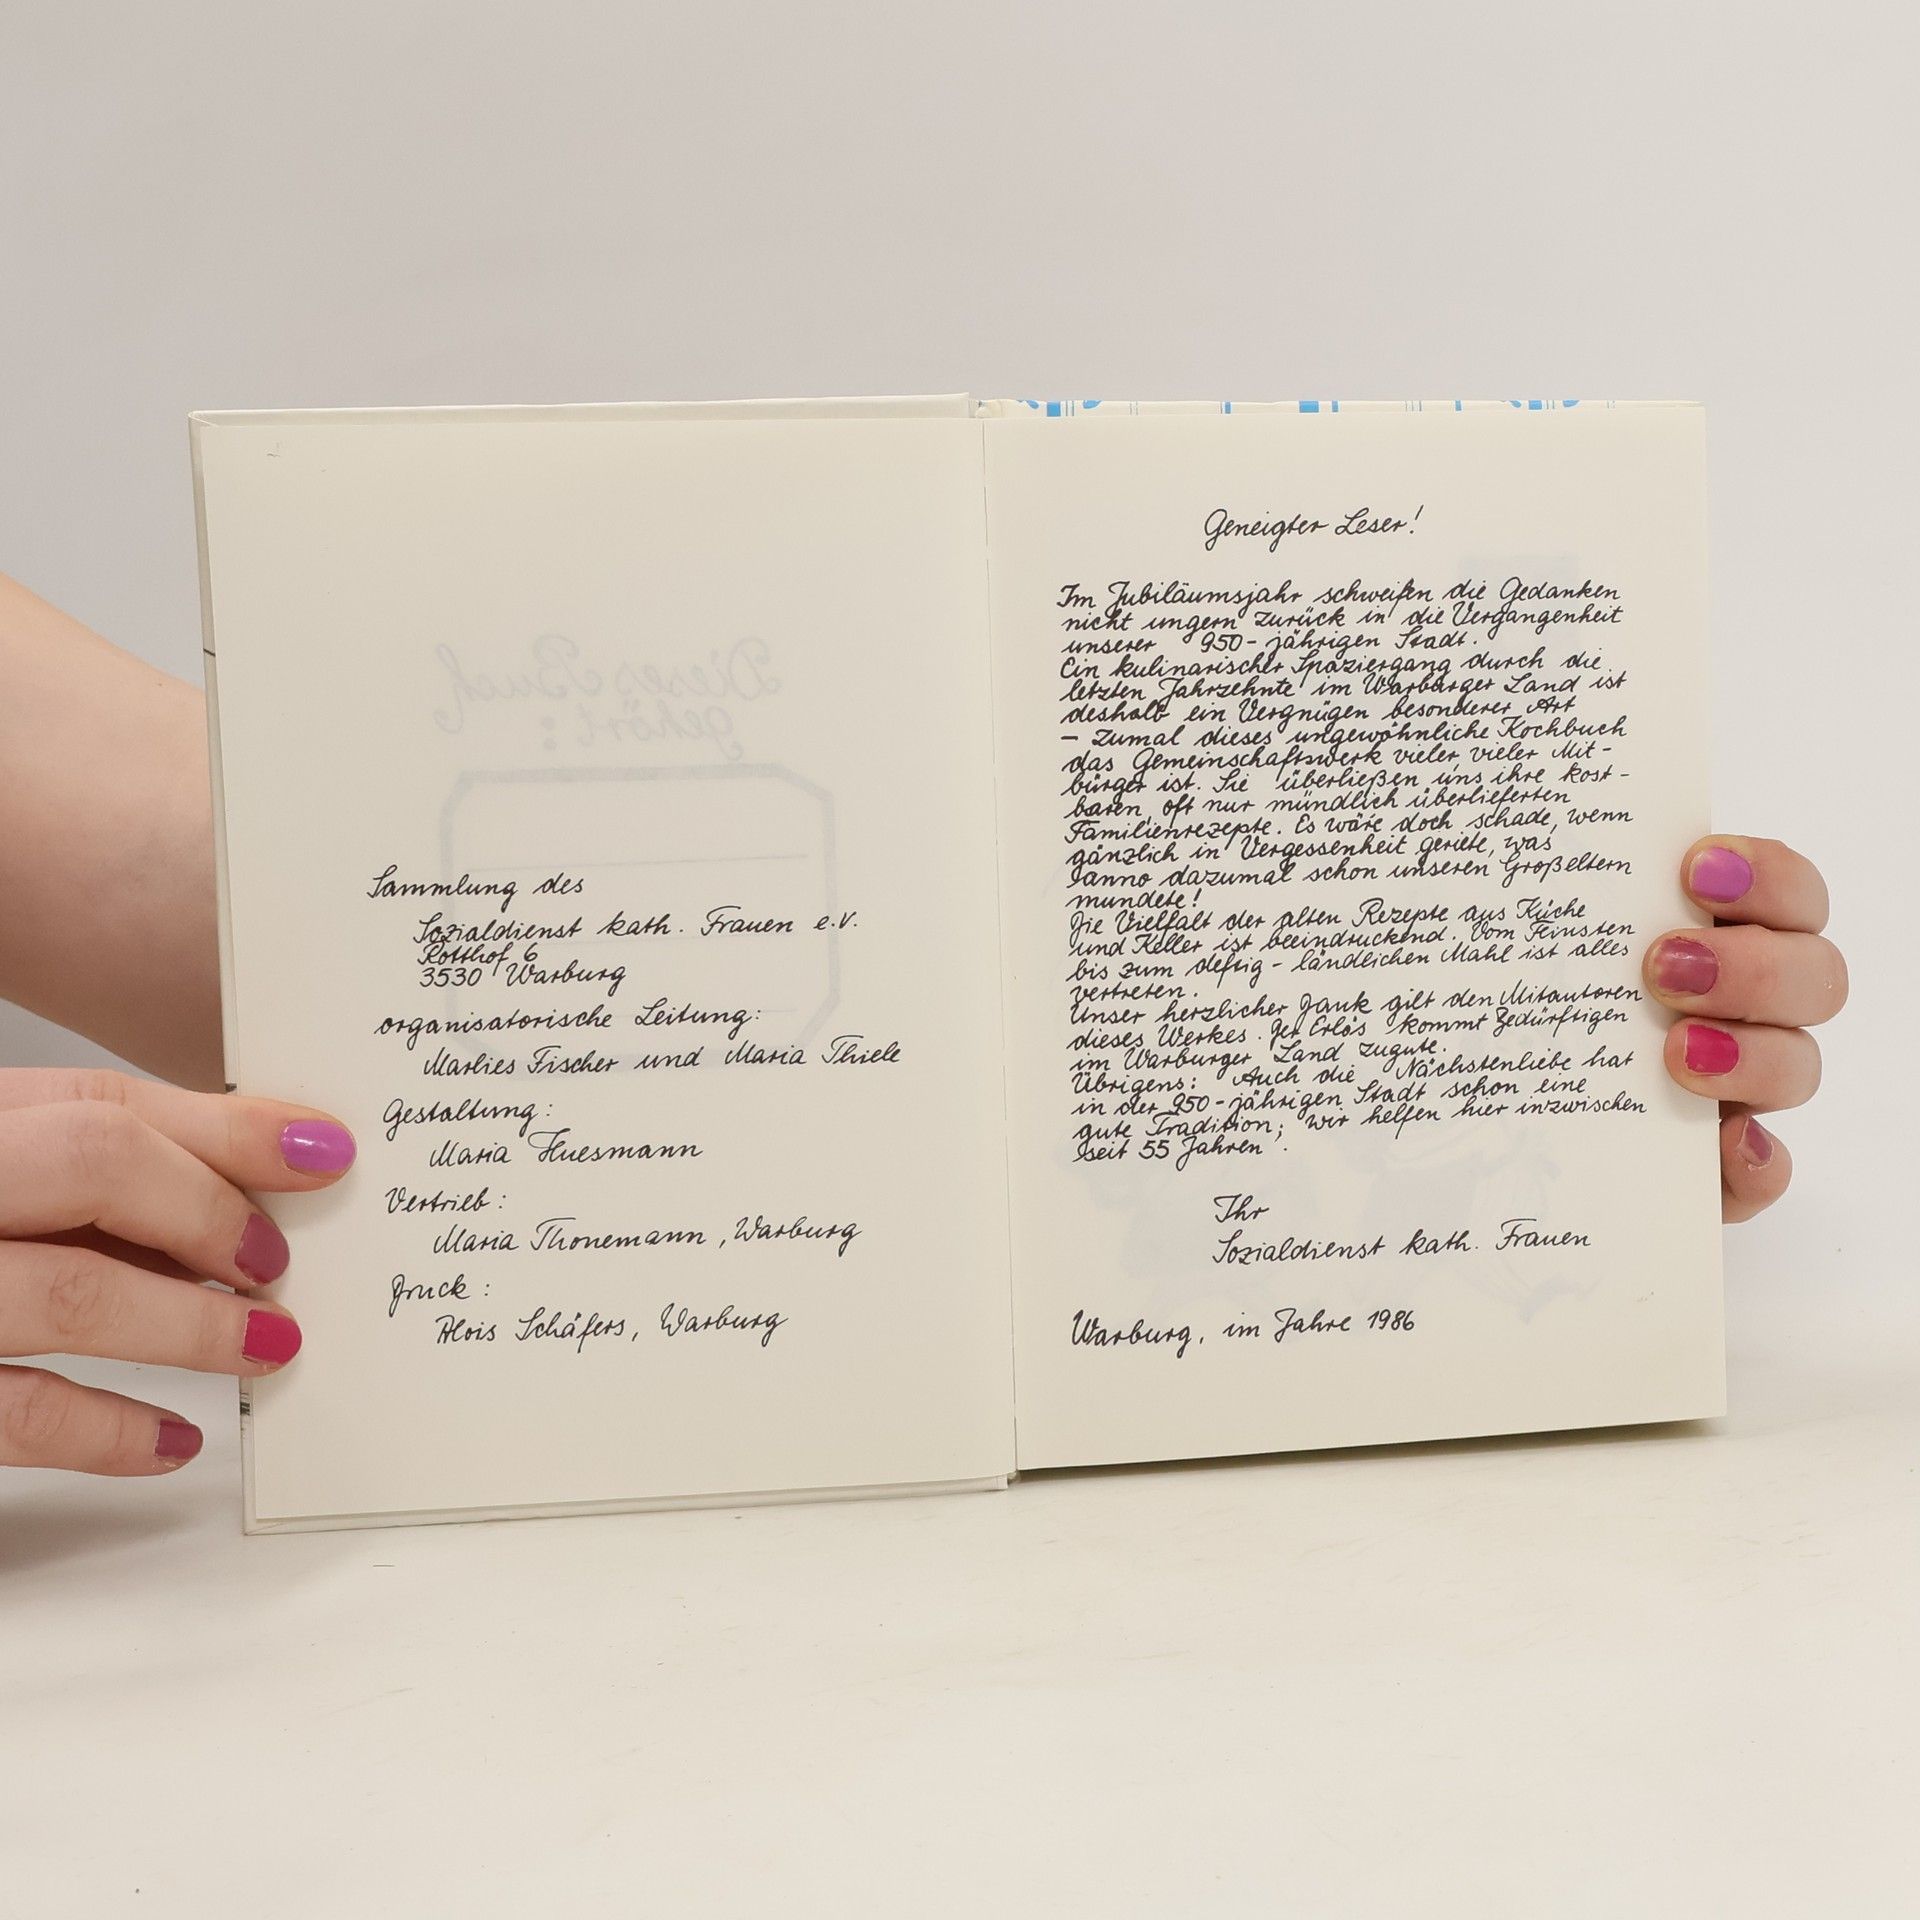 Sammlung des
Sozialdienst kath. Frauen e.V.
Rotthof 6
3530 Warburg
organisatorische Leitung:
Marlies Fischer und Maria Thiele
Gestaltung:
Maria Huesmann
Vertrieb:
Maria Thonemann, Warburg
Druck:
Alois Schäfers, Warburg
Dieses Buch
gehört:
Geneigter Leser!
Im Jubiläumsjahr schweifen die Gedanken
nicht ungern zurück in die Vergangenheit
unserer 950-jährigen Stadt.
Ein kulinarischer Spaziergang durch die
letzten Jahrzehnte im Warburger Land ist
deshalb ein Vergnügen besonderer Art
– zumal dieses ungewöhnliche Kochbuch
das Gemeinschaftswerk vieler, vieler Mit-
bürger ist. Sie überließen uns ihre kost-
baren, oft nur mündlich überlieferten
Familienrezepte. Es wäre doch schade, wenn
gänzlich in Vergessenheit geriete, was
anno dazumal schon unseren Großeltern
mundete!
Die Vielfalt der alten Rezepte aus Küche
und Keller ist beeindruckend. Vom Feinsten
bis zum deftig-ländlichen Mahl ist alles
vertreten.
Unser herzlicher Dank gilt den Mitautoren
dieses Werkes. Der Erlös kommt Bedürftigen
im Warburger Land zugute.
Übrigens: Auch die Nächstenliebe hat
in der 950-jährigen Stadt schon eine
gute Tradition; wir helfen hier inzwischen
seit 55 Jahren.
Ihr
Sozialdienst kath. Frauen
Warburg, im Jahre 1986